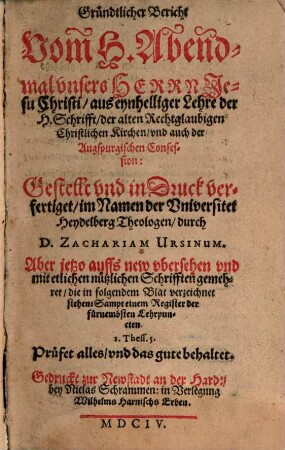 Gründtlicher Bericht
Vom̃ H. Abend-
mal vnsers HERRN Je-
su Christi/ aus eynhelliger Lehre der
H. Schrifft/ der alten Rechtglaubigen
Christlichen Kirchen/ vnd auch der
Augspurgischen Confes-
sion:
Gestellt vnd in Druck ver-
fertiget/ im Namen der Vniversitet
Heydelberg Theologen/ durch
D. ZACHARIAM URSINUM.
Aber jetzo auffs new vbersehen vnd
mit etlichen nützlichen Schrifften gemeh-
ret/ die in folgendem Blat verzeichnet
stehen: Sampt einem Register der
fürnembsten Lehrpun-
cten.
1. Thess. 5.
Prüfet alles/ vnd das gute behaltet.
Gedruckt zur Newstadt an der Hardt/
bey Niclas Schrammen: in Verlegung
Wilhelms Harnischs Erben.
MDCIV.